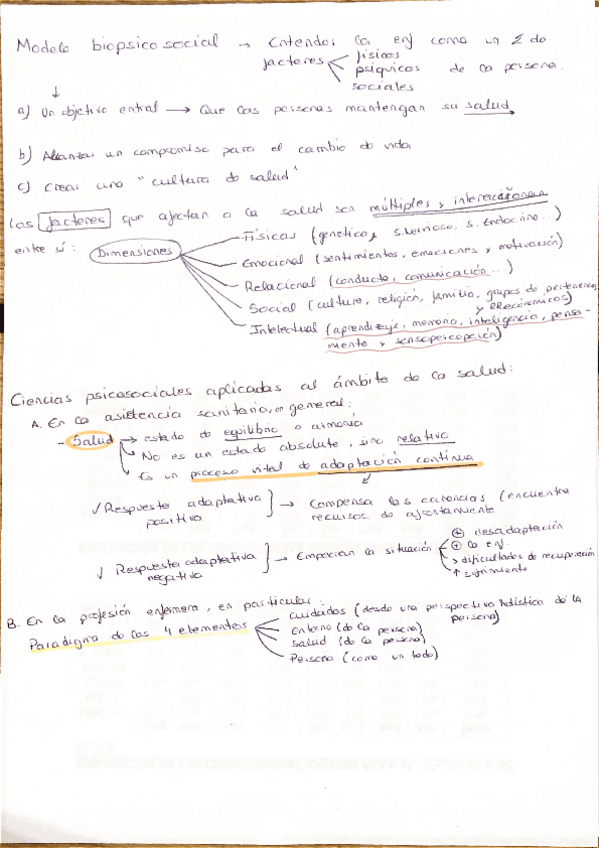 Modelo biopsicosocial → Entender la enf como un Σ de
factores físicos
psíquicos de la persona.
sociales
↓
a) Un objetivo central → Que las personas mantengan su salud.
b) Alcanzar un compromiso para el cambio de vida
c) Crear una "cultura de salud"
Los factores que afectan a la salud son múltiples y interaccionan
entre sí: Dimensiones
Físicas (genética, s. nervioso, s. Endocrino...)
Emocional (sentimientos, emociones y motivación)
Relacional (conducta, comunicación...)
Social (cultura, religión, familia, grupos de pertenencia,
y económicos)
Intelectual (aprendizaje, memoria, inteligencia, pensa-
miento y sensopercepción)
Ciencias psicosociales aplicadas al ámbito de la salud:
A. En la asistencia sanitaria, en general:
- Salud → estado de equilibrio o armonía
→ No es un estado absoluto, sino relativo
→ Es un proceso vital de adaptación continua
✓ Respuesta adaptativa
positiva
→ Compensa las carencias (encuentra
recursos de ajustamiento
✓ Respuesta adaptativa
negativa
→ Empeoran la situación
⊕ desadaptación
⊕ la enf.
> dificultades de recuperación
↑ sufrimiento
B. En la profesión enfermera, en particular:
Paradigma de los 4 elementos
cuidados (desde una perspectiva holística de la
persona)
Entorno (de la persona)
Salud (de la persona)
Persona (como un todo)